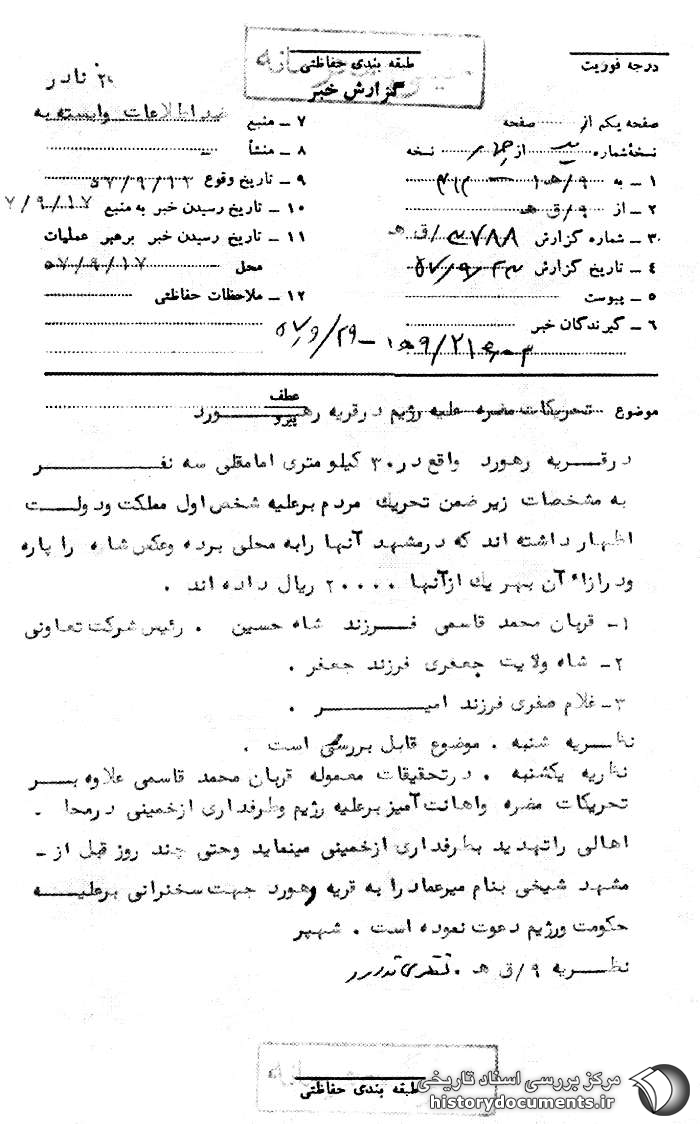 درجه فوریت
طبقه بندی حفاظتی
گزارش خبر
نادر
صفحه یکم از صفحه
نسخهٔ شماره یک از چهار نسخه
۱ - به ۹/ه‍ ۱ - ۳۱۲
۲ - از ۹/ق ه‍
۳ - شماره گزارش ۳۷۸۸/ق ه‍
۴ - تاریخ گزارش
۵ - پیوست
۶ - گیرندگان خبر
۷ - منبع ضد اطلاعات وابسته به
۸ - منشأ
۹ - تاریخ وقوع ۵۷/۹/۱۳
۱۰ - تاریخ رسیدن خبر به منبع ۷/۹/۱۷
۱۱ - تاریخ رسیدن خبر برهبر عملیات
محل ۵۷/۹/۱۷
۱۲ - ملاحظات حفاظتی
موضوع تحریکات مضره علیه رژیم در قریه رهورد
عطف
پیرو
در قریه رهورد واقع در ۳۰ کیلومتری امامقلی سه نفر
به مشخصات زیر ضمن تحریک مردم برعلیه شخص اول مملکت و دولت
اظهار داشته اند که در مشهد آنها را به محلی برده و عکس شاه را پاره
و در ازاء آن بهر یک از آنها ۲۰۰۰۰ ریال داده اند .
۱- قربان محمد قاسمی فرزند شاه حسین . رئیس شرکت تعاونی
۲- شاه ولایت جعفری فرزند جعفر .
۳- غلام صفری فرزند امیر .
نظریه شنبه . موضوع قابل بررسی است .
نظریه یکشنبه . در تحقیقات معموله قربان محمد قاسمی علاوه بر
تحریکات مضره و اهانت آمیز برعلیه رژیم و طرفداری از خمینی در محل -
اهالی را تهدید بطرفداری از خمینی مینماید و حتی چند روز قبل از -
مشهد شیخی بنام میرعماد را به قریه رهورد جهت سخنرانی برعلیه
حکومت و رژیم دعوت نموده است . شهپر
نظریه ۹/ق ه‍ .
طبقه بندی حفاظتی
مرکز بررسی اسناد تاریخی
historydocuments.ir